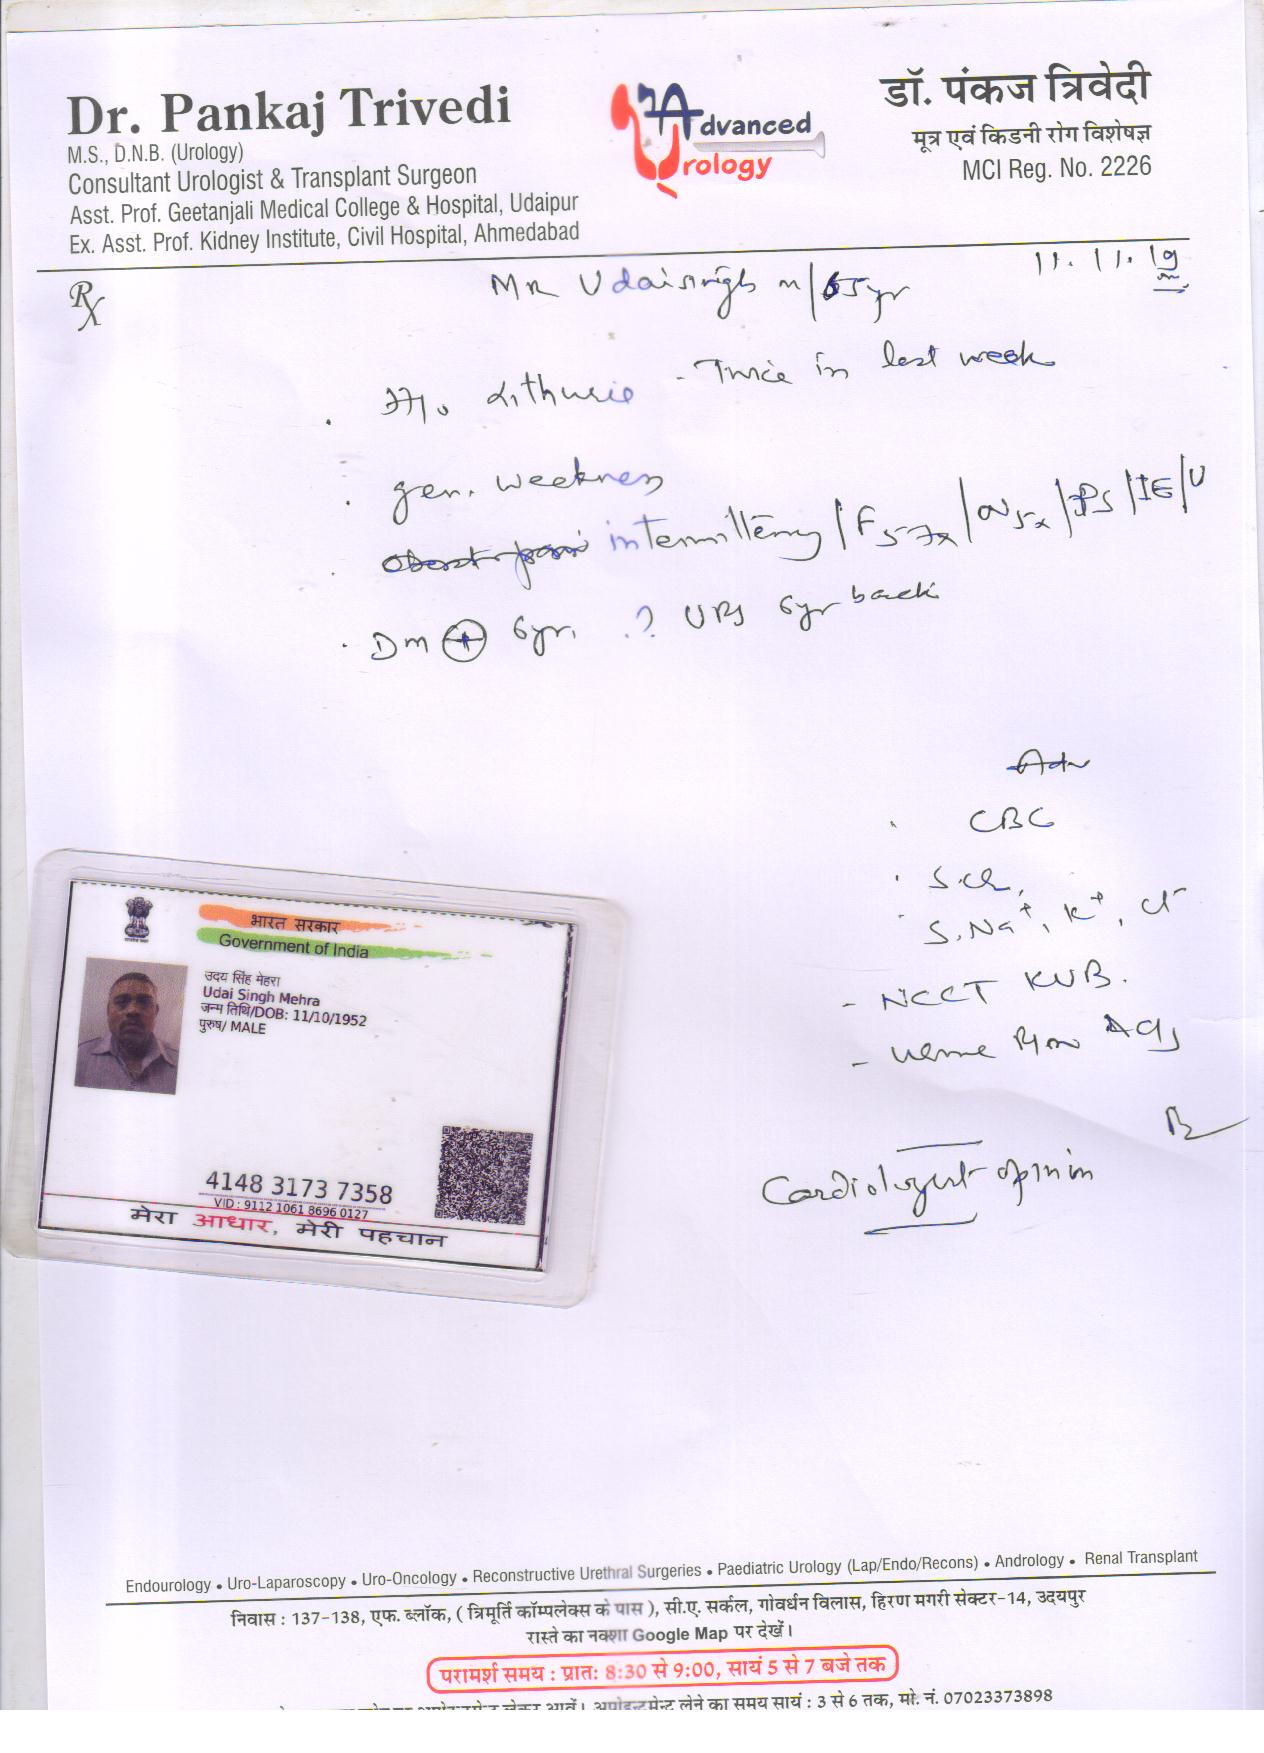 Dr. Pankaj Trivedi
M.S., D.N.B. (Urology)
Consultant Urologist & Transplant Surgeon
Asst. Prof. Geetanjali Medical College & Hospital, Udaipur
Ex. Asst. Prof. Kidney Institute, Civil Hospital, Ahmedabad
Advanced
Urology
डॉ. पंकज त्रिवेदी
मूत्र एवं किडनी रोग विशेषज्ञ
MCI Reg. No. 2226
11.11.19
Rx
Mr Udaisingh m/65yr
H/o Lithuria - Twice in last week
gen. weeknes
intermittency / F 5-7x / N 5x / PS / IE / U
Dm + 6yr. ? URS 6yr back
Adv
CBC
S.Cr,
S. Na+, K+, Cl-
- NCCT KUB.
- Urine R/m
Cardiologist opinion
भारत सरकार
Government of India
उदय सिंह मेहरा
Udai Singh Mehra
जन्म तिथि/DOB: 11/10/1952
पुरुष/ MALE
4148 3173 7358
VID : 9112 1061 8696 0127
मेरा आधार, मेरी पहचान
Endourology • Uro-Laparoscopy • Uro-Oncology • Reconstructive Urethral Surgeries • Paediatric Urology (Lap/Endo/Recons) • Andrology • Renal Transplant
निवास : 137-138, एफ. ब्लॉक, ( त्रिमूर्ति कॉम्पलेक्स के पास ), सी.ए. सर्कल, गोवर्धन विलास, हिरण मगरी सेक्टर-14, उदयपुर
रास्ते का नक्शा Google Map पर देखें।
परामर्श समय : प्रातः 8:30 से 9:00, सायं 5 से 7 बजे तक
लेकर आवें। अपोइन्टमेन्ट लेने का समय सायं : 3 से 6 तक, मो. नं. 07023373898